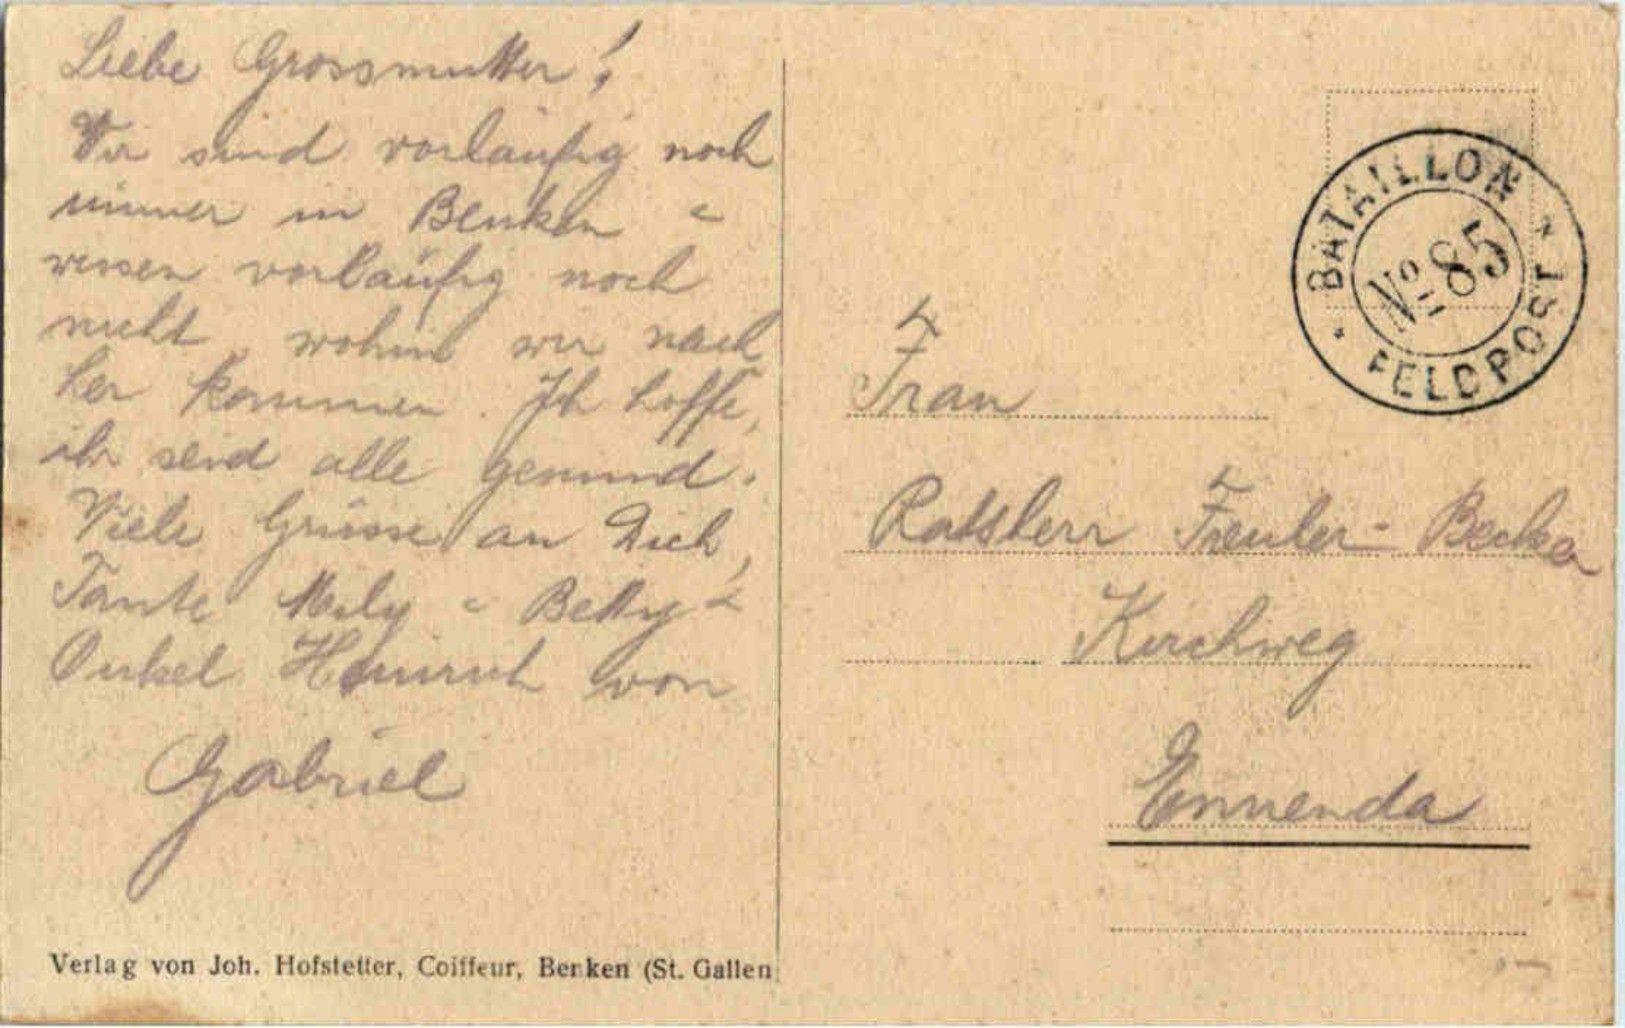 Liebe Grossmutter!
Wir sind vorläufig noch
immer in Benken &
wissen vorläufig noch
nicht, wohin wir nach
her kommen. Ich hoffe,
ihr seid alle gesund.
Viele Grüsse an Dich,
Tante Mely & Betty &
Onkel Heinrich von
Gabriel
Verlag von Joh. Hofstetter, Coiffeur, Benken (St. Gallen
BATAILLON
No 85
FELDPOST
Frau
Ratsherr Freuler-Becker
Kirchweg
Ennenda